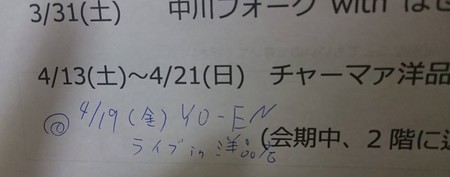 3/31(土) 中川フォーク with はせ
4/13(土)〜4/21(日) チャーマァ洋品
◎ 4/19(金) YO-EN
ライブ in 洋品店
(会期中、2階に